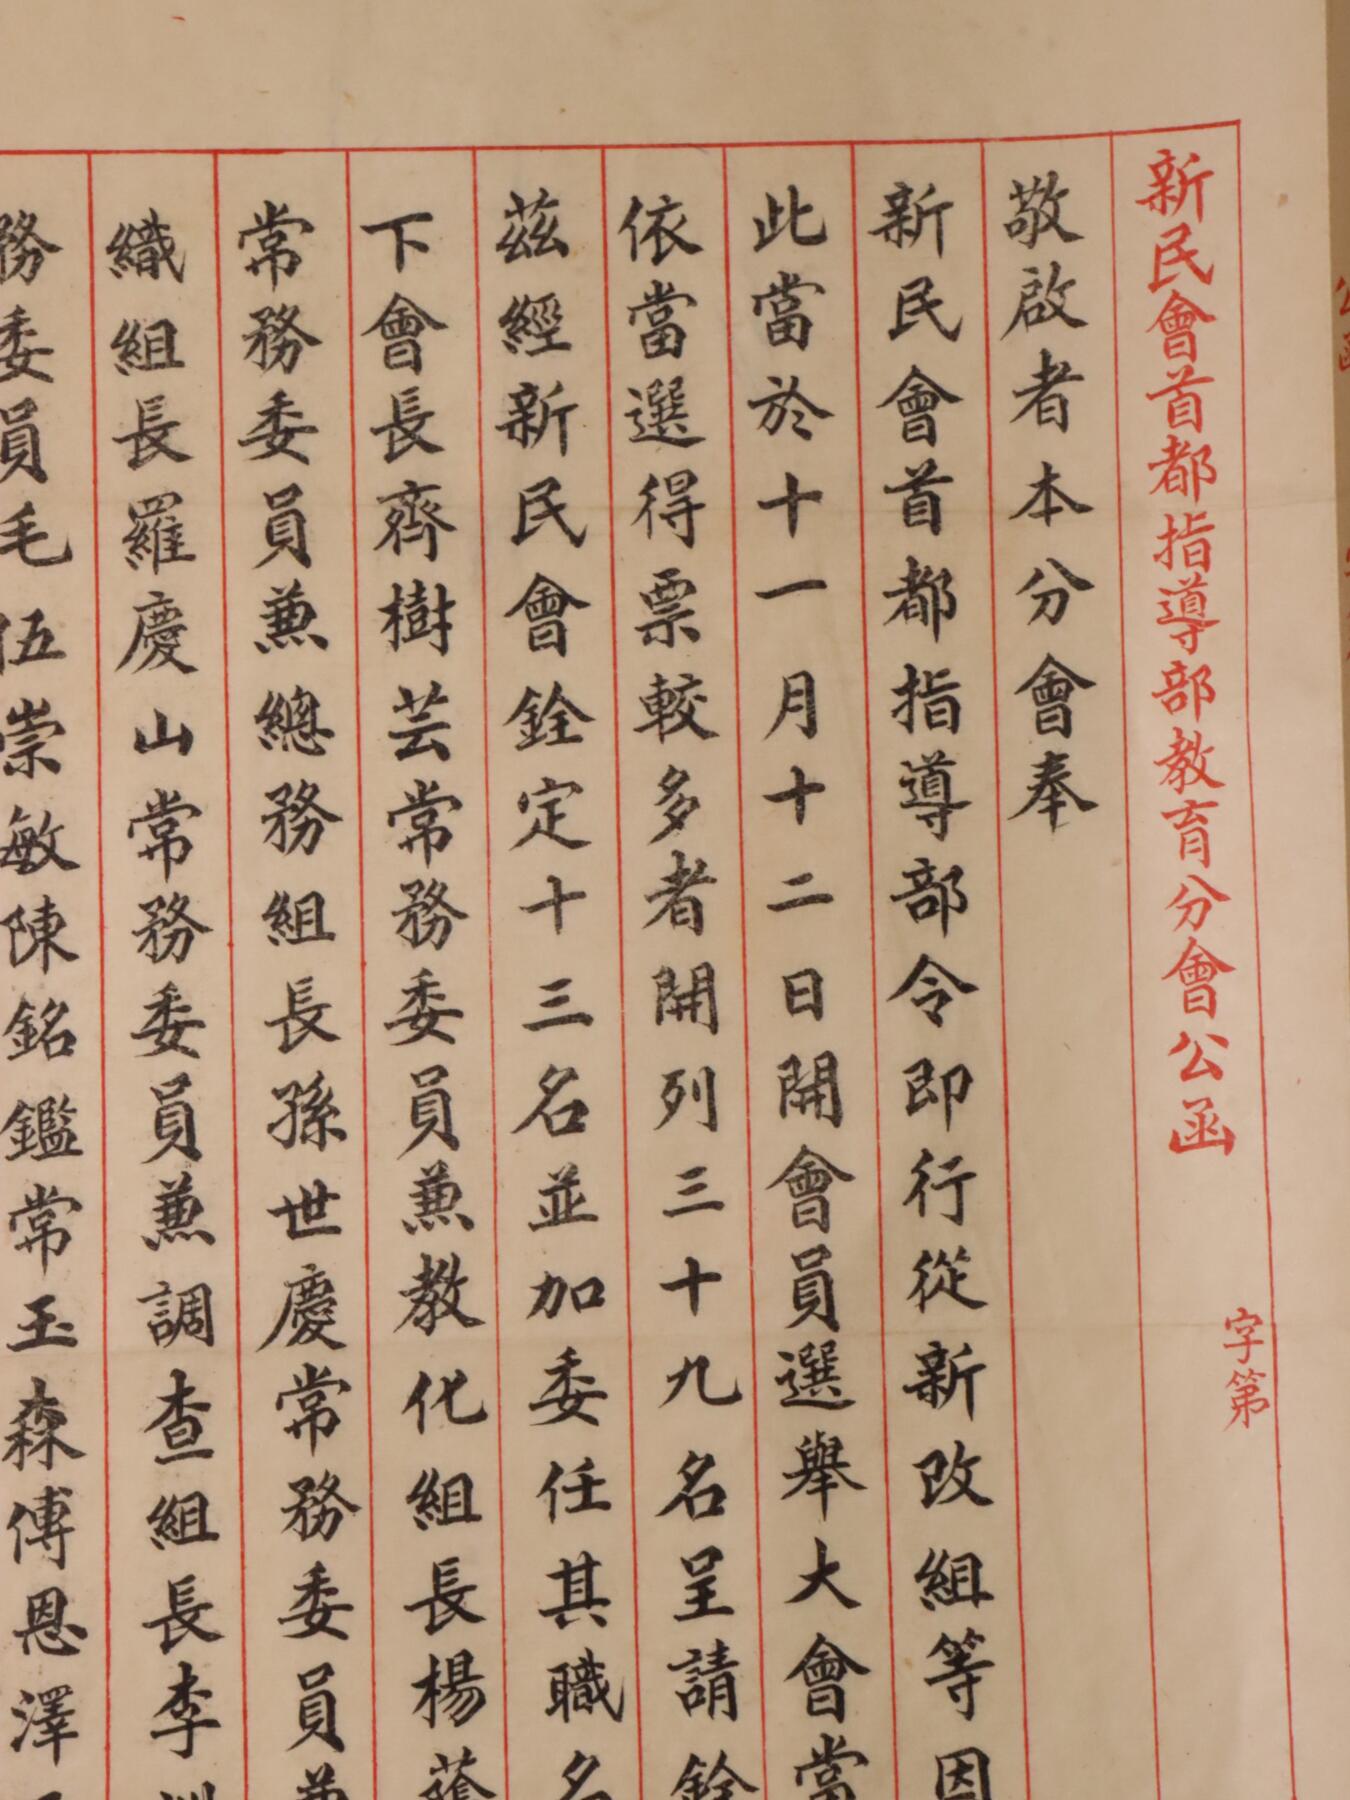 新民會首都指導部教育分會公函 字第
敬啟者本分會奉
新民會首都指導部令即行從新改組等因
此當於十一月十二日開會員選舉大會當
依當選得票較多者開列三十九名呈請銓
茲經新民會銓定十三名並加委任其職名
下會長齊樹芸常務委員兼教化組長楊蔭
常務委員兼總務組長孫世慶常務委員兼
織組長羅慶山常務委員兼調查組長李
務委員毛伍崇敏陳銘鑑常玉森傅恩澤
公函